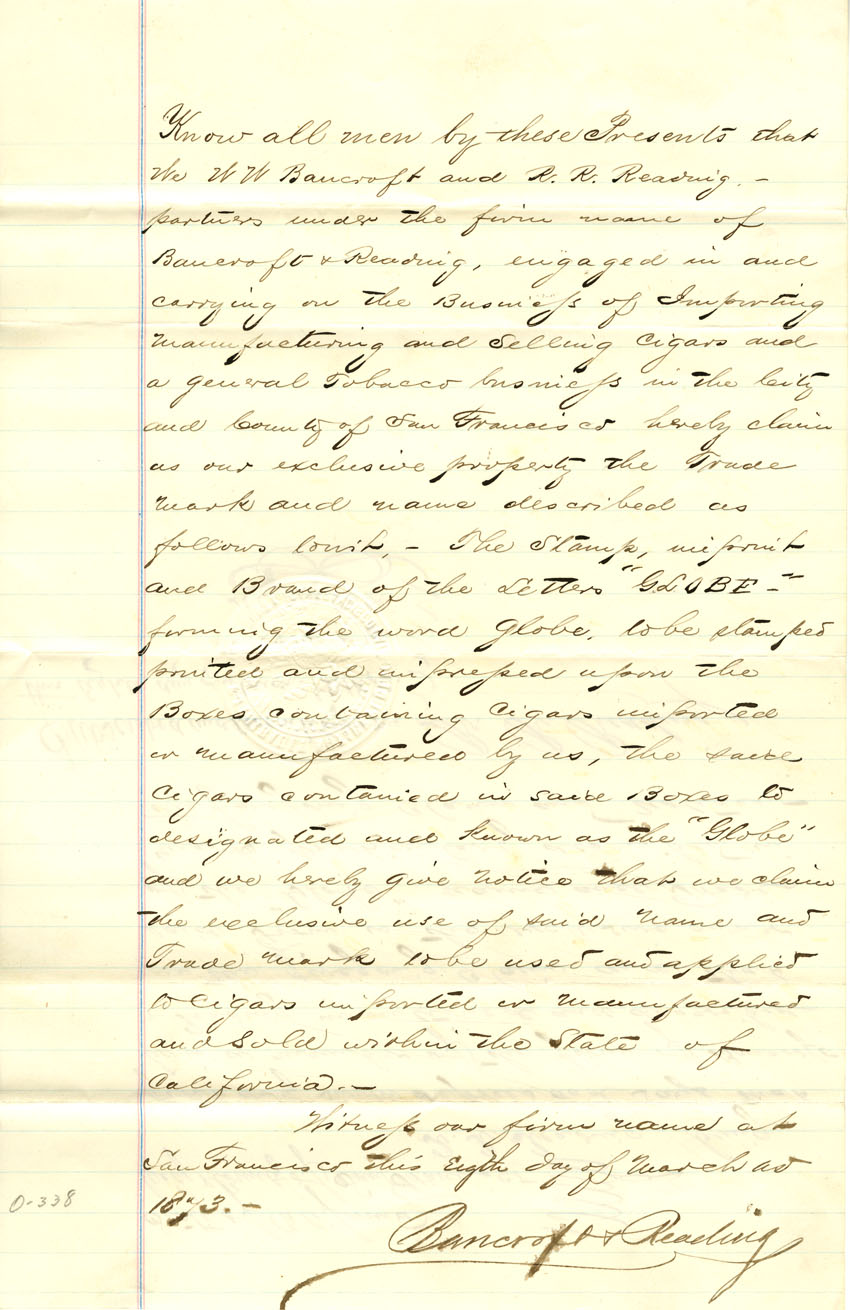 Know all men by these Presents that
We W W Bancroft and R. R. Reading, -
partners under the firm name of
Bancroft & Reading, engaged in and
carrying on the Business of Importing
manufacturing and Selling Cigars and
a general Tobacco business in the City
and County of San Francisco hereby claim
as our exclusive property the Trade
mark and name described as
follows towit, - The Stamp, imprint
and Brand of the Letters "GLOBE -"
forming the word Globe, to be stamped
printed and impressed upon the
Boxes containing Cigars imported
or manufactured by us, the said
Cigars contained in said Boxes to
designated and known as the "Globe"
and we hereby give notice that we claim
the exclusive use of said name and
Trade mark to be used and applied
to Cigars imported or manufactured
and Sold within the State of
California. -
Witness our firm name at
San Francisco this Eigth day of March AD
1873. -
Bancroft & Reading
0-338